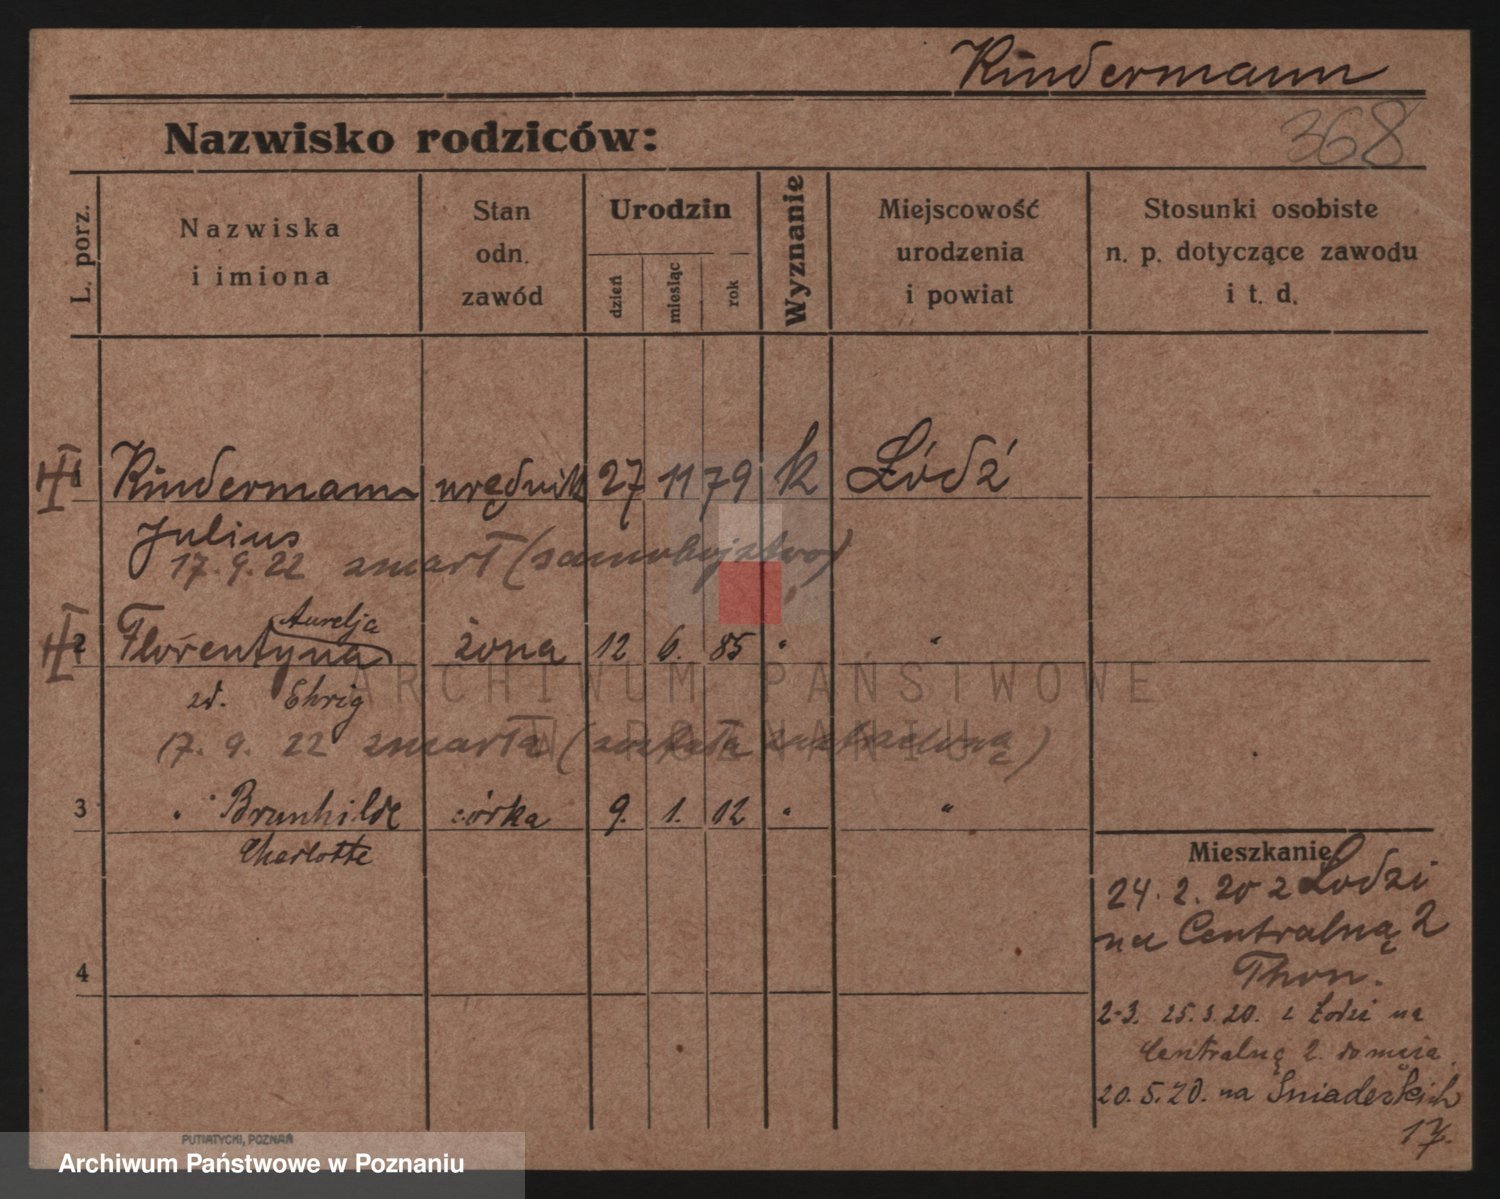 Kindermann
Nazwisko rodziców:
368
L. porz.
Nazwiska
i imiona
Stan
odn.
zawód
Urodzin
dzień
miesiąc
rok
Wyznanie
Miejscowość
urodzenia
i powiat
Stosunki osobiste
n. p. dotyczące zawodu
i t. d.
1 Kindermann urzędnik 27 11 79 k Łódź
Julius
17. 9. 22 zmarł (samobójstwo)
Aurelja
2 Florentyna żona 12 6. 85 " "
zd. Ehrig
17. 9. 22 zmarła (została zastrzeloną)
3 " Brunhilde córka 9. 1. 12 " "
Charlotte
4
Mieszkanie
24. 2. 20 z Łodzi
na Centralną 2
Thon.
2-3. 25. 3. 20. z Łodzi na
Centralną 2. do męża.
20. 5. 20. na Śniadeckich
17.
ARCHIWUM PAŃSTWOWE
W POZNANIU
PUTIATYCKI, POZNAŃ
Archiwum Państwowe w Poznaniu